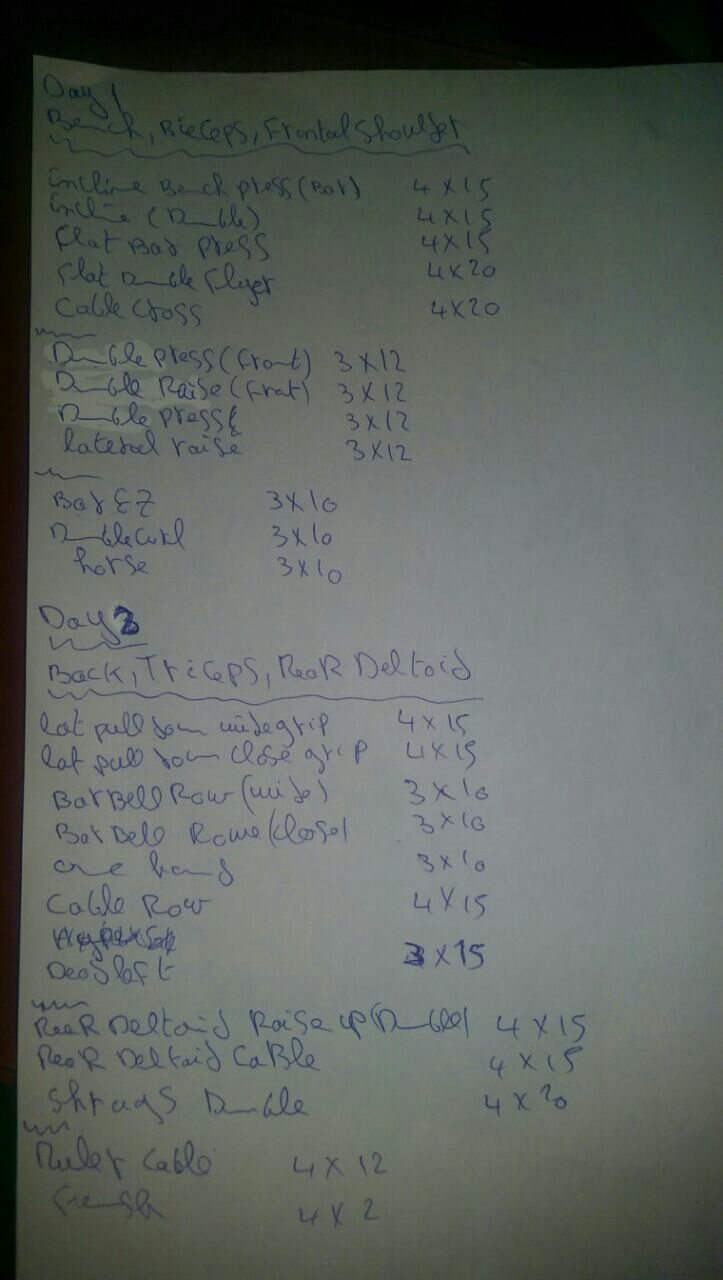 Day 1
Bench, Bieceps, Frontal Shoulder
incline Bench press (Bar) 4 X 15
incline (Dumble) 4 X 15
Flat Bar press 4 X 15
Flat Dumble Flyer 4 X 20
Cable Cross 4 X 20
Dumble press (front) 3 X 12
Dumble Raise (front) 3 X 12
Dumble press 3 X 12
lateral raise 3 X 12
Bar EZ 3 X 10
Dumble curl 3 X 10
horse 3 X 10
Day 2
Back, Triceps, ReaR Deltoid
lat pull down wide grip 4 X 15
lat pull down close grip 4 X 15
BarBell Row (wide) 3 X 10
BarBell Rowe (close) 3 X 10
one hand 3 X 10
Cable Row 4 X 15
Deadleft 3 X 15
ReaR Deltoid Raise up (Dumble) 4 X 15
ReaR Deltoid CaBle 4 X 15
Shrugs Dumble 4 X 20
Cable 4 X 12
4 X 2